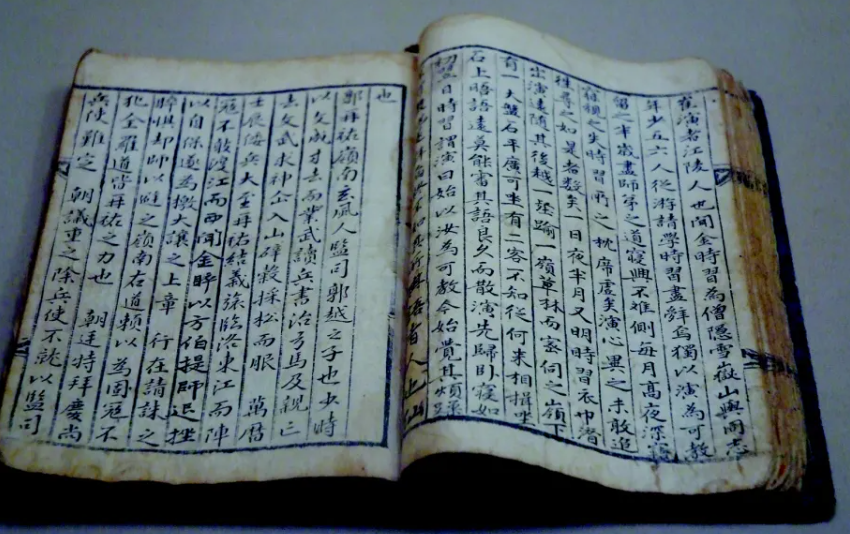 崔演者江陵人也聞金時習為僧隱雪嶽山與同志
年少五六人從游請學時習盡辞焉獨以演為可教
留之半歲盡師弟之道寢興不離側每月高夜深
寐視之失時習所之枕席虛矣演心異之未敢追
往尋之如是者数矣一日夜半月又明時習衣巾潛
出演遠隨其後越一壑踰一嶺草林而密伺之嶺下
有一大盤石平廣可坐有二客不知從何来相揖坐
石上晤語遠莫能審其語良久而散演先歸卧寢如
初翌日時習謂演曰始以汝為可教今始覺其煩
也
郭再祐嶺南玄風人監司郭越之子也少時
以文成才去而業武讀兵書治弓馬及親亡
去文武求神仚入山辟穀採松而服 萬曆
壬辰倭兵大至再祐結義旅臨洛東江而陣
冦不敢渡江而西聞金睟以方伯提師退挫
以自保遂為檄大讓之上章 行在請誅之
睟惧却師以避之嶺南右道賴以為固冦不
犯全羅道皆再祐之力也 朝廷特拜慶尚
兵使難定 朝議重之除兵使不就以監司